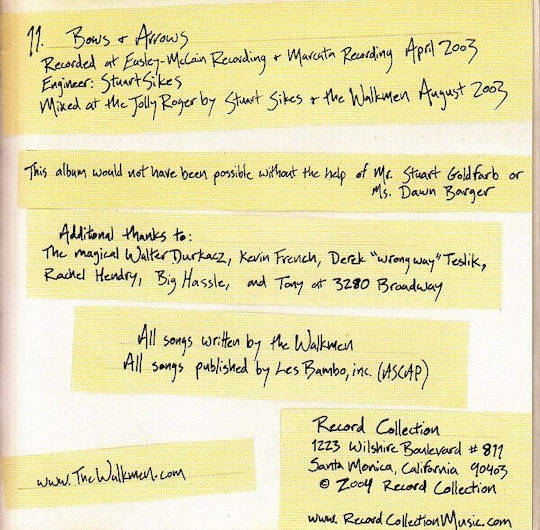 11. Bows + Arrows
Recorded at Easley-McCain Recording + Marcata Recording April 2003
Engineer: Stuart Sikes
Mixed at the Jolly Roger by Stuart Sikes + the Walkmen August 2003
This album would not have been possible without the help of Mr. Stuart Goldfarb or
Ms. Dawn Barger
Additional thanks to:
The magical Walter Durkacz, Kevin French, Derek "wrongway" Teslik,
Rachel Hendry, Big Hassle, and Tony at 3280 Broadway
All songs written by the Walkmen
All songs published by Les Bambo, inc. (ASCAP)
www.TheWalkmen.com
Record Collection
1223 Wilshire Boulevard # 811
Santa Monica, California 90403
© 2004 Record Collection
www.RecordCollectionMusic.com